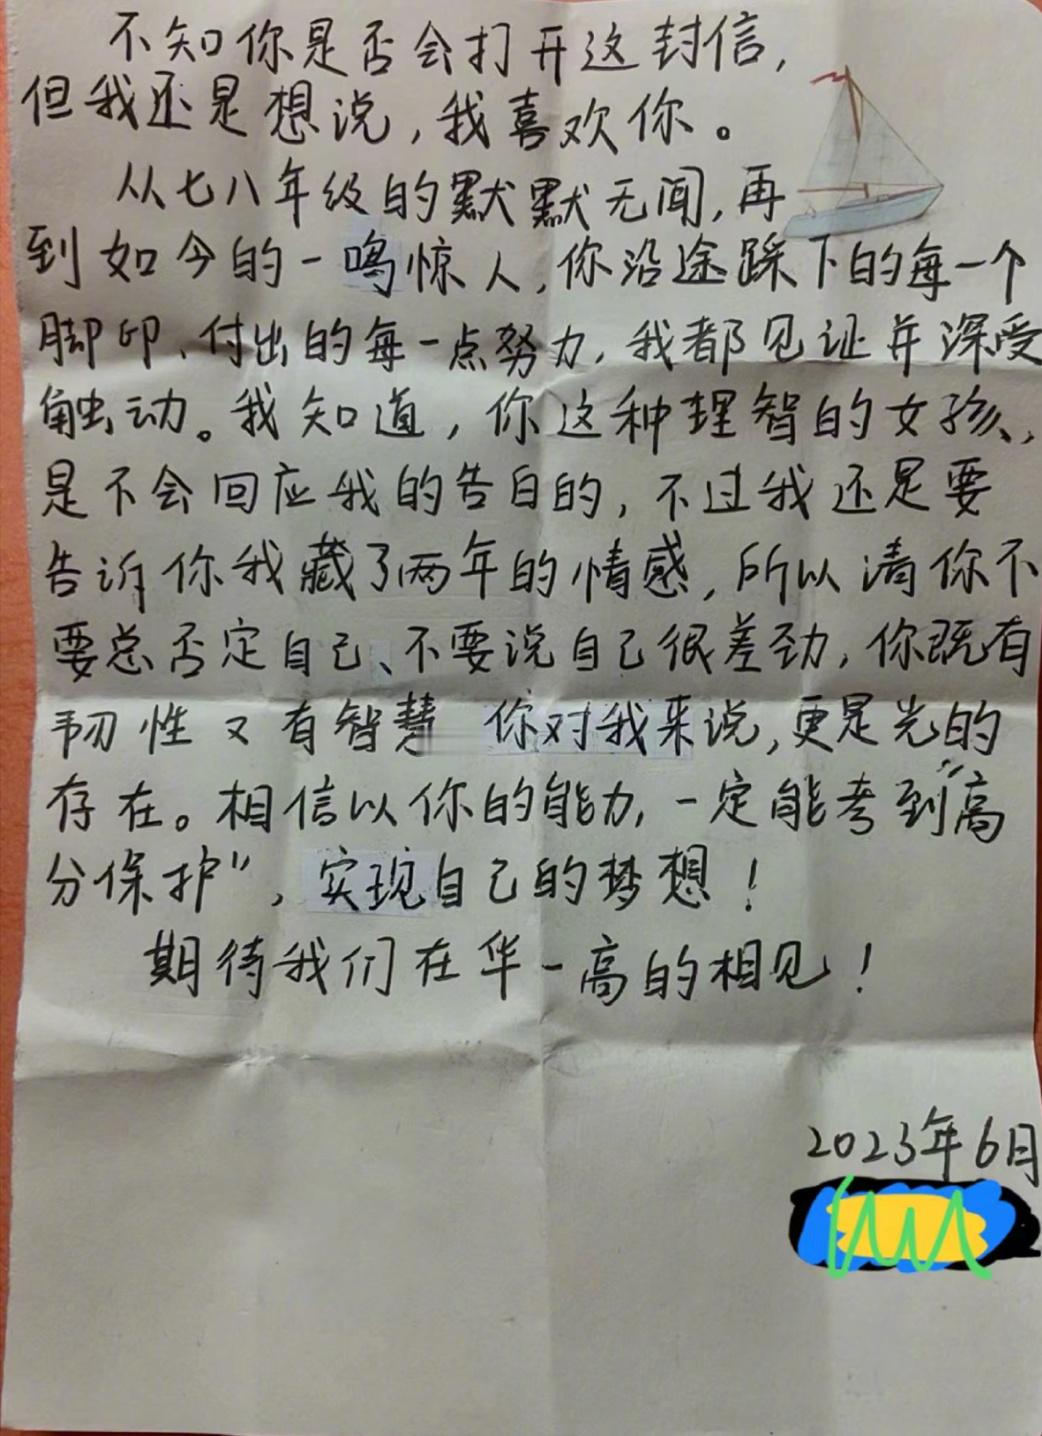 不知你是否会打开这封信,
但我还是想说,我喜欢你。
从七八年级的默默无闻,再
到如今的一鸣惊人,你沿途踩下的每一个
脚印、付出的每一点努力,我都见证并深受
触动。我知道,你这种理智的女孩,
是不会回应我的告白的,不过我还是要
告诉你我藏了两年的情感,所以请你不
要总否定自己、不要说自己很差劲,你既有
韧性又有智慧 你对我来说,更是光的
存在。相信以你的能力,一定能考到“高
分保护”,实现自己的梦想!
期待我们在华一高的相见!
2023年6月